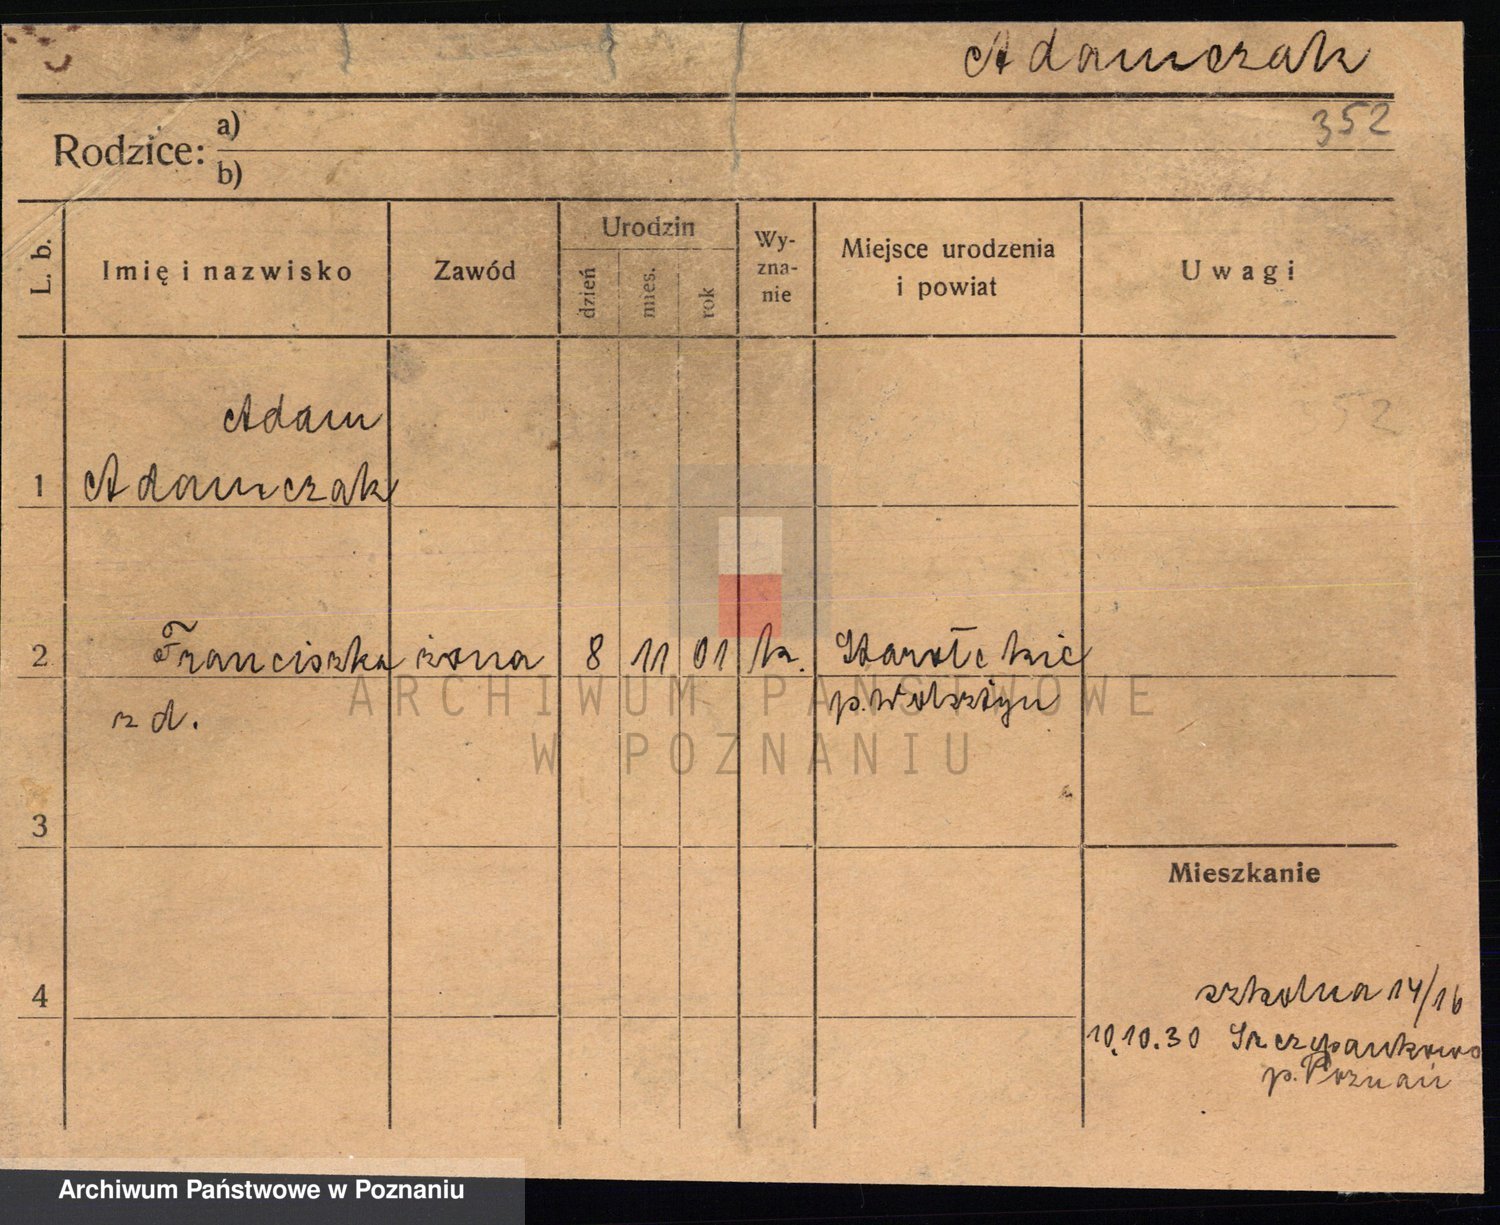 Adamczak
352
Rodzice: a)
b)
L. b.
Imię i nazwisko
Zawód
Urodzin
dzień
mies.
rok
Wy-
zna-
nie
Miejsce urodzenia
i powiat
Uwagi
352
Adam
1 Adamczak
2 Franciszka żona 8 11 01 k.
z d. p. Wolsztyn
ARCHIWUM PAŃSTWOWE
W POZNANIU
3
Mieszkanie
4 szkolna 14/16
10.10.30 Szczepankowo
p. Poznań
Archiwum Państwowe w Poznaniu